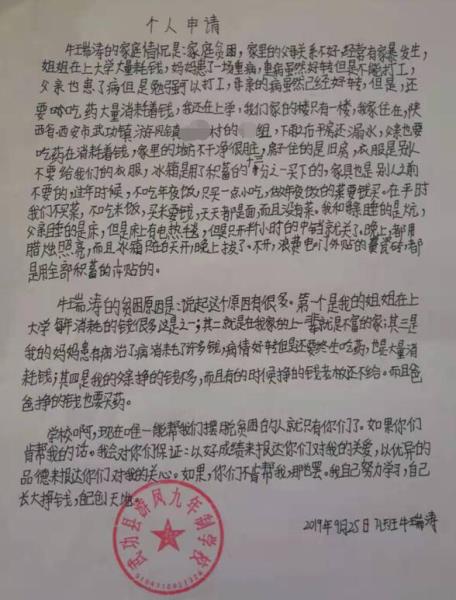 个人申请
牛瑞涛的家庭情况是:家庭贫困,家里的父母关系不好,经常有家暴发生,
姐姐在上大学大量耗钱,妈妈患了一场重病,重病虽然好转但是不能打工,
父亲也患了病但是勉强可以打工,母亲的病虽然已经好转,但是,还
要吃药大量消耗着钱,我还在上学,我们家的楼只有一楼,我家住在,陕
西省西安市武功镇游凤镇 村的 组,下雨右书房还漏水,父亲也要
吃药在消耗着钱,家里的地方不干净很脏,房子住的是旧房,衣服是别人
不要给我们的衣服,冰箱是用了积蓄的十三分之一买下的,家具也是别人之前
不要的,过年时候,不吃年夜饭,只买一点小吃,做年夜饭的菜要钱买。在平时
我们不买菜,不吃米饭,买米要钱,天天都是面,而且没有菜。我和 睡的是炕,
父亲睡的是床,但是床上有电热毯,但只开半小时的中档就关了。晚上,都用
腊烛照亮,而且冰箱只在白天开,晚上拔了。不开,浪费电,门外贴的 瓷砖,都
是用全部积蓄的 贴的。
牛瑞涛的贫困原因是:说起这个原因有很多。第一个是我的姐姐在上
大学每年消耗的钱很多这是之一;其二就是在我家的上一辈就是不富的家;其三是
我的妈妈患有病治了病消耗了许多钱,病情好转但是还要终生吃药,也是大量消
耗钱;其四是我的父亲挣的钱不多,而且有的时候挣的钱老板还不给。而且爸
爸挣的钱也要买药。
学校啊,现在唯一能帮我们摆脱贫困的人就只有你们了。如果你们
肯帮我的话。我会对你们保证:以好成绩来报达你们对我的关爱,以优异的品
德来报达你们对我的关心。如果,你们不肯帮我,那也罢。我自己努力学习,自己
长大挣钱,自己创天地。
2019年9月25日 班牛瑞涛
武功县游凤九年制学校